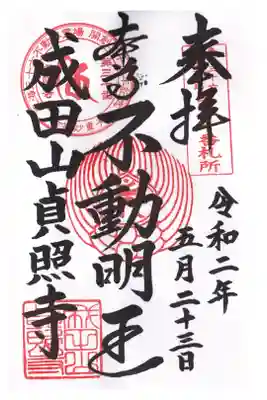 奉拝
令和二年
五月二十三日
本尊
不動明王
成田山貞照寺
番札所